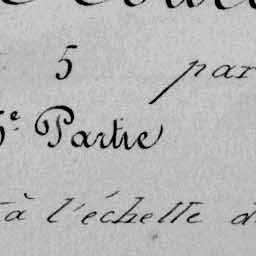 5 par
e Partie
à l'échelle d